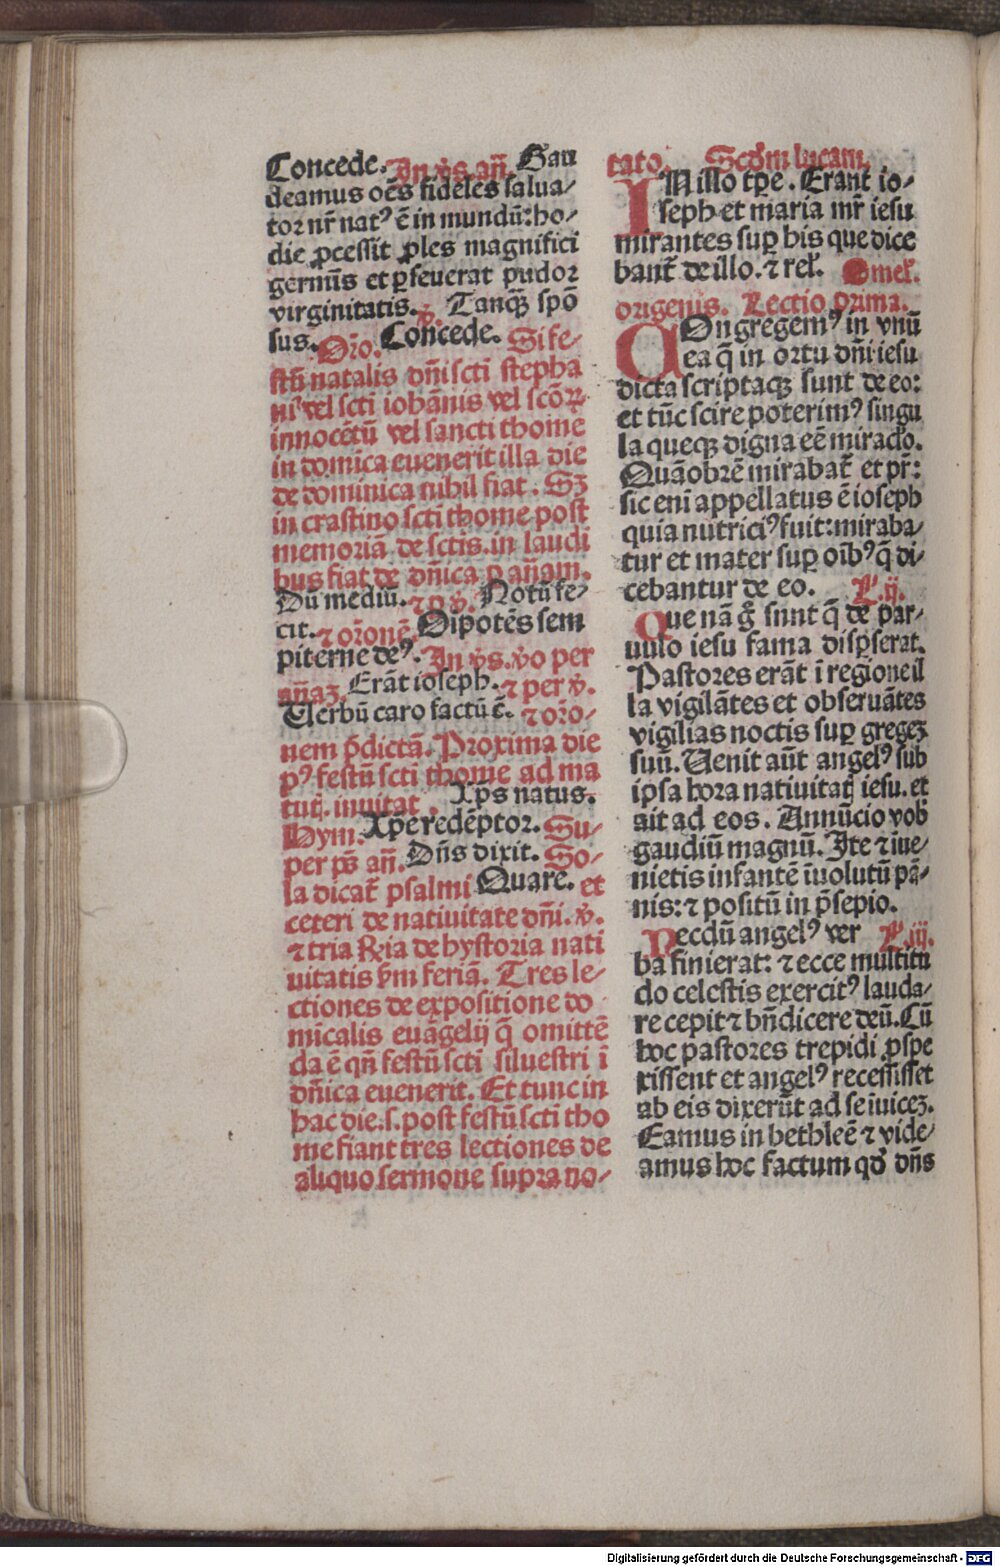 Concede. In vꝭs. añ. Gau
deamus oēs fideles salua/
tor nr̄ natꝰ ē in mundū: ho/
die ꝓcessit ꝓles magnifici
germīs et ꝑseuerat pudor
virginitatis. v̄. Tanqꝫ spō
sus. Or̄o. Concede. Si fe/
stū natalis dn̄i scti stepha
ni vel scti iohānis vel scōꝝ
innocētū vel sancti thome
in domīca euenerit illa die
de dominica nihil fiat. Sꝫ
in crastino scti thome post
memoriā de sctis. in laudi
bus fiat de dn̄ica ꝑ añam.
Dū mediū. ⁊ v̄. Notū fe/
cit. ⁊ or̄onē. Oīpotēs sem
piterne deꝰ. In vꝭs. v̄o per
añaꝫ. Erāt ioseph. ⁊ per v̄.
Uerbū caro factū ē. ⁊ or̄o/
nem p̄dictā. Proxima die
pꝰ festū scti thome ad ma
tuꝭ. inuitat. Xp̄s natus.
Hym. Xp̄e redēptor. Su/
per p̄s añ. Dn̄s dixit. So/
la dicat̄ psalmi Quare. et
ceteri de natiuitate dn̄i. v̄.
⁊ tria R̄ia de hystoria nati
uitatis ẜm feriā. Tres le/
ctiones de expositione do
micalis euāgelij q̄ omittē
da ē qn̄ festū scti siluestri ī
dn̄ica euenerit. Et tunc in
hac die. s. post festū scti tho
me fiant tres lectiones de
aliquo sermone supra no/
tato. Scd̄m lucam.
IN illo tꝑe. Erant io/
seph et maria mr̄ iesu
mirantes suꝑ his que dice
bant̄ de illo. ⁊ rel̄. Omel̄.
origenis. Lectio prima.
COngregemꝰ in vnū
ea q̄ in ortu dn̄i iesu
dicta scriptaqꝫ sunt de eo:
et tūc scire poterimꝰ singu
la queqꝫ digna eē miraclo.
Quāobrē mirabat̄ et pr̄:
sic eni appellatus ē ioseph
quia nutriciꝰ fuit: miraba/
tur et mater suꝑ oībꝰ q̄ di/
cebantur de eo. L̄. ij.
Que nā g̊ sunt q̄ de par/
uulo iesu fama disꝑserat.
Pastores erāt ī regione il
la vigilātes et obseruātes
vigilias noctis suꝑ gregeꝫ
suū. Uenit aūt angelꝰ sub
ipsa hora natiuitatꝭ iesu. et
ait ad eos. Annūcio vob
gaudiū magnū. Ite ⁊ īue/
nietis infantē īuolutū pā/
nis: ⁊ positū in p̄sepio.
Necdū angelꝰ ver L̄. iij.
ba finierat: ⁊ ecce multitu
do celestis exercitꝰ lauda/
re cepit ⁊ bn̄dicere deū. Cū
hoc pastores trepidi ꝓspe
xissent et angelꝰ recessisset
ab eis dixerūt ad se īuiceꝫ.
Eamus in bethleē ⁊ vide/
amus hoc factum qd̄ dn̄s
Digitalisierung gefördert durch die Deutsche Forschungsgemeinschaft - DFG